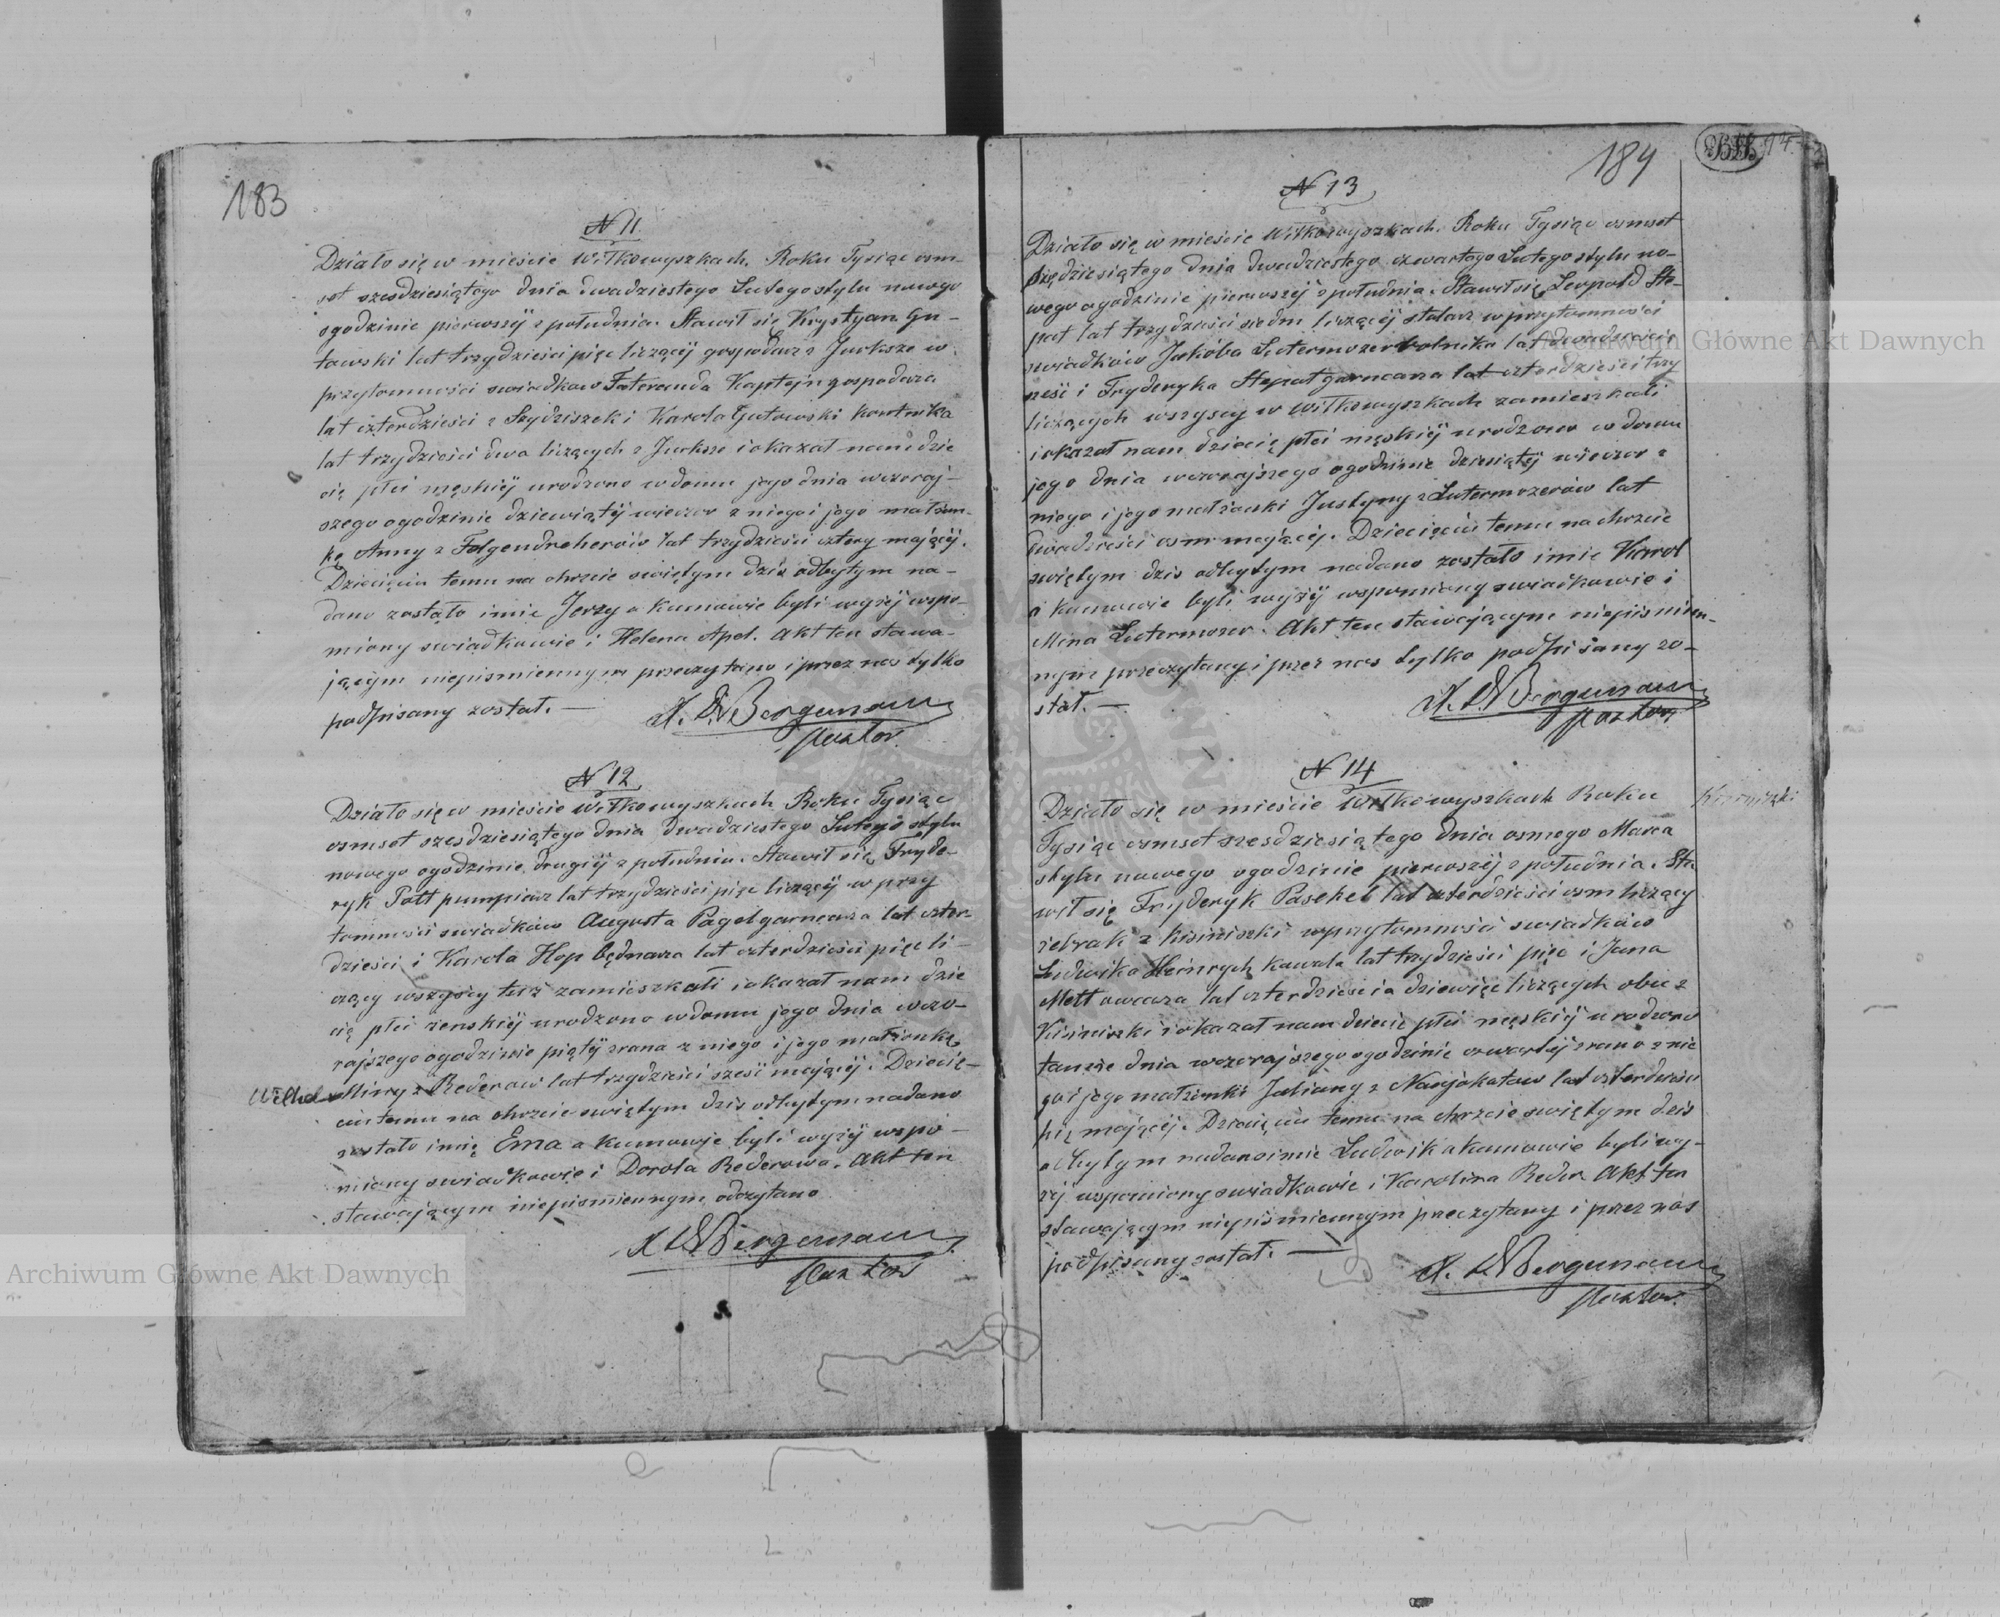 183
N 11
Działo się w mieście Wiłkowyszkach. Roku Tysiąc osm-
set szesdziesiątego dnia dwudziestego Lutego stylu nowego
ogodzinie pierwszéj z południa. Stawił się Krystyan Gu-
towski lat trzydzieści pięc liczący gospodarz z Jurksze w
przytomności swiadkow Kaptejn gospodarza
lat czterdzieści z Szydziszek i Karola Gutowski kontnika
lat trzydzieści dwa liczących z Jurksze i okazał nam dzie
cię płci męskiéj urodzone w domu jego dnia wczoraj-
szego ogodzinie dziewiątéj wieczor z niego i jego małżon-
kę Anny z Folgendreherów lat trzydzieści cztery mającéj.
Dziecięciu temu na chrzcie swiętym dziś odbytym na-
dano zostało imie Jerzy a kumowie byli wyżéj wspo-
miony swiadkowie i Helena Apel. Akt ten stawa-
jącym niepismiennym przeczytano i przez nas tylko
podpisany został. —
Bergemann
Pastor.
N 12
Działo się w mieście Wiłkowyszkach Roku Tysiąc
osmset szesdziesiątego dnia dwudziestego Lutego stylu
nowego ogodzinie drugiéj z południa. Stawił się Fryde-
ryk Pott pumpiarz lat trzydzieści pięc liczący w przy
tomności swiadków Augusta Pagel garncarza lat czter-
dzieści i Karola Hop bednarza lat czterdzieści pięc li-
czący wszyscy tuż zamieszkałi i okazał nam dzie
cię płci żenskiéj urodzono w domu jego dnia wczo-
rajszego ogodzinie piątéj zrana z niego i jego małżonkę
Wilhel Miny z Rederow lat trzydzieści szesc mającéj. Dziecię-
ciu temu na chrzcie swiętym dziś odbytym nadano
zostało imię Ema a kumowie byli wyżéj wspo-
miony swiadkowie i Dorota Rederowa. Akt ten
stawającym niepismiennym odczytano
Bergemann
Pastor
184
N 13
Działo się w mieście Wiłkowyszkach. Roku Tysiąc osmset
dnia dwudziestego czwartego Lutego stylu no-
wego ogodzinie pierwszéj z południa. Stawił się Leopold Ste-
pat lat trzydzieści siedm liczący stolarz w przytomności
swiadków Jakóba Lutermozer rolnika lat dwadzieścia
i Fryderyka Stepat garncarza lat czterdzieści trzy
liczących wszyscy w Wiłkowyszkach zamieszkali
i okazał nam dziecię płci męskiéj urodzono w domu
jego dnia wczorajszego ogodzinie dziesiątéj wieczor z
niego i jego małżonki Justyny z Lutermozerów lat
dwadzieści osm mającéj. Dziecięciu temu na chrzcie
swiętym dzis odbytym nadano zostało imie Karol
a kumowie byli wyżéj wspomniony swiadkowie i
Mina Lutermozer. Akt ten stawającym niepismien-
nym przeczytany i przez nas tylko podpisany zo-
stał. —
Bergemann
Pastor.
N 14
Działo się w mieście Wiłkowyszkach Roku
Tysiąc osmset szesdziesiątego dnia osmego Marca
stylu nowego ogodzinie pierwszéj z południa. Sta
wił się Fryderyk Paschel lat czterdzieści osm liczący
żebrak z Kisiniszki wprzytomność swiadków
Ludwika Heinrych kowala lat trzydzieści pięc i Jana
Mett owczarza lat czterdzieścia dziewięc liczących obu z
Kisiniszki i okazał nam dziecie płci męskiéj urodzono
tamże dnia wczorajszego ogodzinie czwartéj zrana z nie
go i jego małżonki Julianny z lat czterdzieści
pię mającéj. Dziecięciu temu na chrzcie swiętym dzis
odbytym nadano imie Ludwik a kumowie byli wy-
żéj wspomiony swiadkowie i Karolina Reder. Akt ten
stawającym niepismiennym przeczytany i przez nas
podpisany został. —
Bergemann
Pastor.
Archiwum Główne Akt Dawnych
Archiwum Główne Akt Dawnych